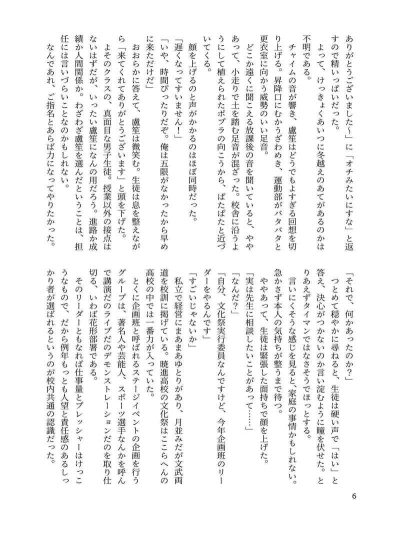 ありがとうございました〜」に「オチみたいにすな」と返
すので精いっぱいだった。
よって、けっきょくあいつに冬越えのあてがあるのかは
不明である。
チャイムの音が響き、盧笙はどうでもよすぎる回想を切
り上げる。昇降口にむかうざわめき、運動部がバタバタと
更衣室に向かう威勢のいい足音。
どこか遠くに聞こえる放課後の音を聞いていると、やや
あって、小走りで土を踏む足音が混ざった。校舎に沿うよ
うにして植えられたポプラの向こうから、ぱたぱたと近づ
いてくる。
顔を上げるのと声がかかるのはほぼ同時だった。
「遅くなってすいません！」
「いや、時間ぴったりだぞ。俺は五限がなかったから早め
に来ただけだ」
おおらかに答えて、盧笙は微笑む。生徒は息を整えなが
ら「来てくれてありがとうございます」と頭を下げた。
よそのクラスの、真面目な男子生徒。授業以外の接点は
ないはずだが、いったい盧笙になんの用だろう。進路か成
績か人間関係か。わざわざ盧笙を選んだということは、担
任には言いづらいことなのかもしれない。
なんであれ、ご指名とあらば力になってやりたかった。
「それで、何かあったのか？」
つとめて穏やかに尋ねると、生徒は硬い声で「はい」と
答え、決心がつかないのか言い淀むように瞳を伏せた。と
りあえずタイマンではなさそうでほっとする。
言いにくそうな感じを見ると、家庭の事情かもしれない。
急かさず本人の気持ちが整うまで待つ。
ややあって、生徒は緊張した面持ちで顔を上げた。
「実は先生に相談したいことがあって……」
「なんだ？」
「自分、文化祭実行委員なんですけど、今年企画班のリー
ダーをやるんです」
「すごいじゃないか」
私立で経営にまあまあゆとりがあり、月並みだが文武両
道を校訓に掲げている。暁進高校の文化祭はここらへんの
高校の中では一番力が入っていた。
とくに企画班と呼ばれるステージイベントの企画を行う
グループは、著名人や芸能人、スポーツ選手なんかを呼ん
で講演だのライブだのデモンストレーションだのを取り仕
切る、いわば花形部署である。
そのリーダーともなれば仕事量とプレッシャーはけっこ
うなもので、だから例年もっとも人望と責任感のあるしっ
かり者が選ばれるというのが校内共通の認識だった。
6